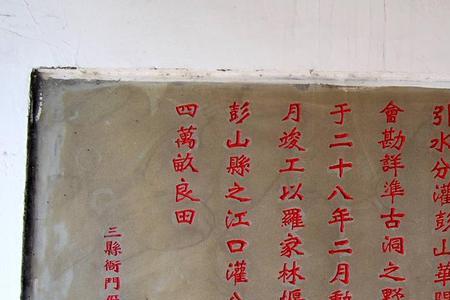 引水分灌彭山華陽
會勘詳準古洞之野
于二十八年二月動
月竣工以羅家林堰
彭山縣之江口灌八
四萬畝良田
三縣衙門